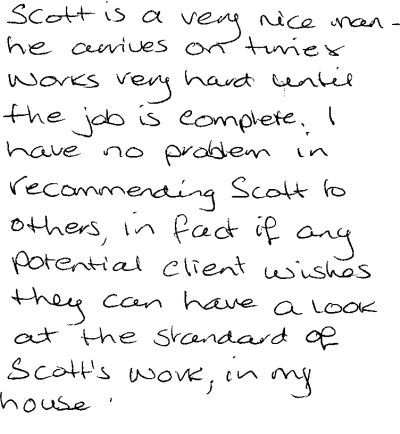 Scott is a very nice man -
he arrives on time &
works very hard until
the job is complete. I
have no problem in
recommending Scott to
others, in fact if any
potential client wishes
they can have a look
at the standard of
Scott's work, in my
house.